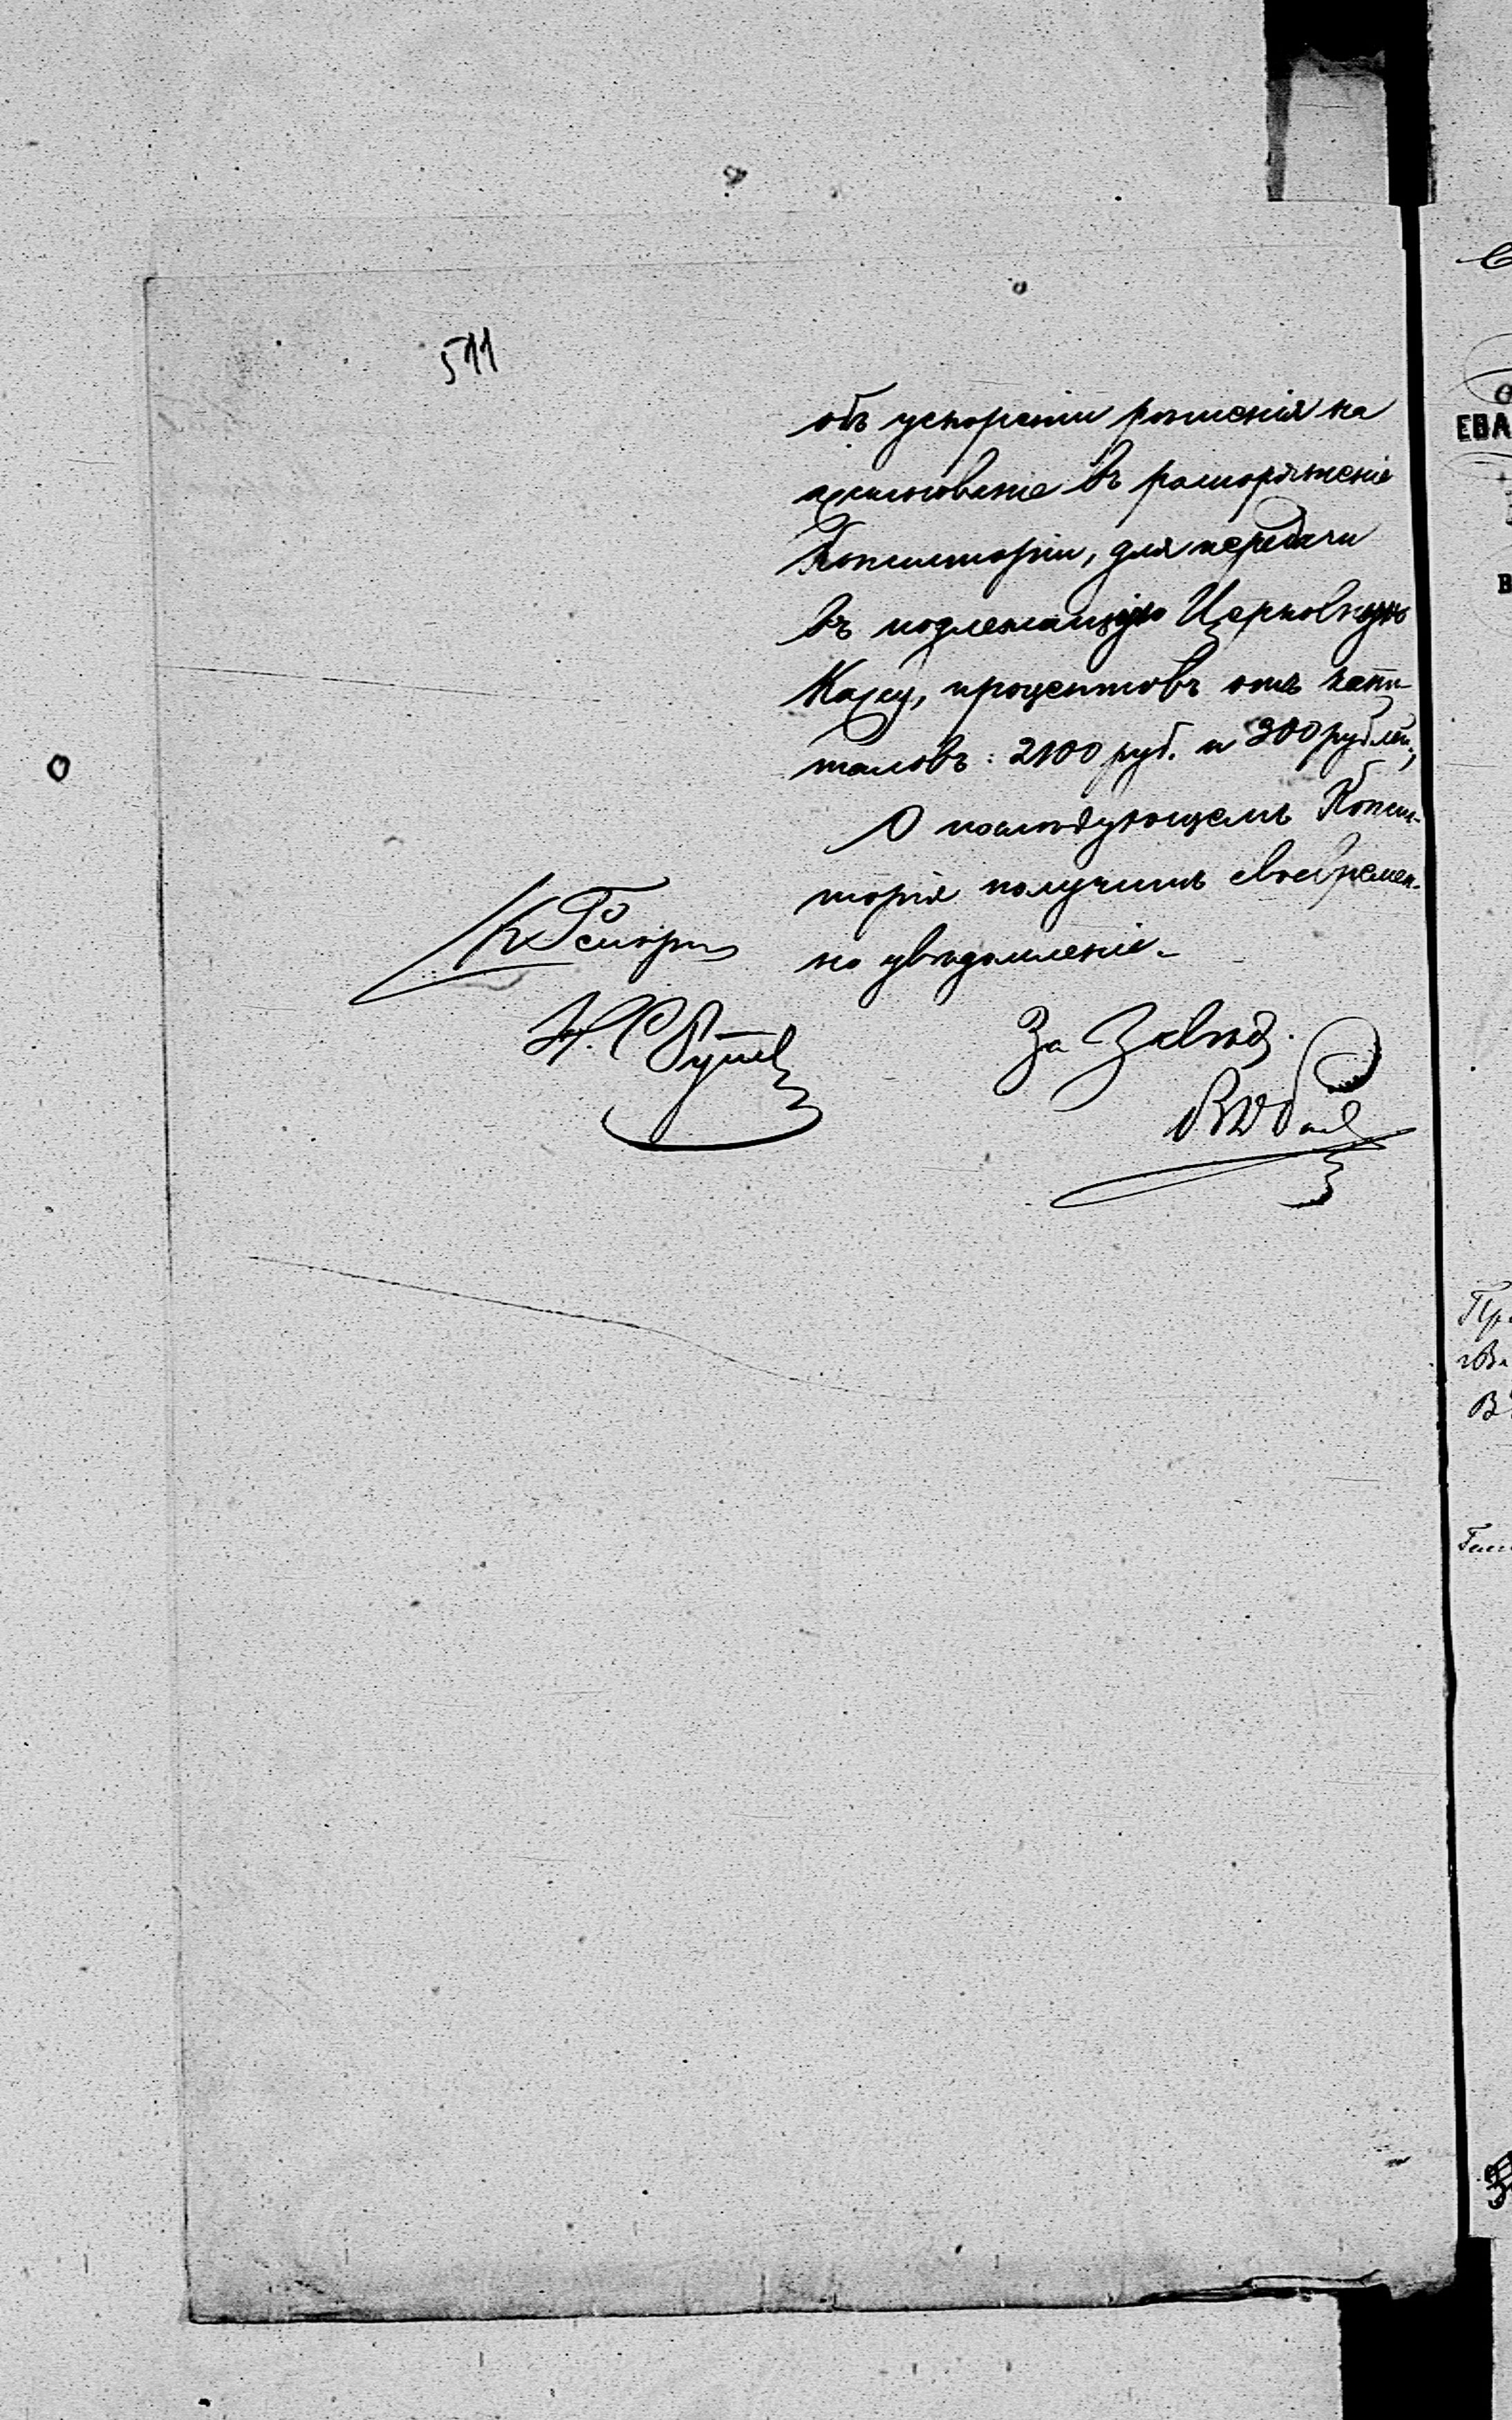 511
объ ускореніи рѣшенія на
ассигнованіе въ распоряженіе
Консисторіи, для передачи
въ подлежащую Церковную
Кассу, процентовъ отъ капи-
таловъ: 2100 руб. и 300 рублей,
О послѣдующемъ Консис-
торія получитъ своевремен-
но увѣдомленіе.
За Завѣд.
ЕВА